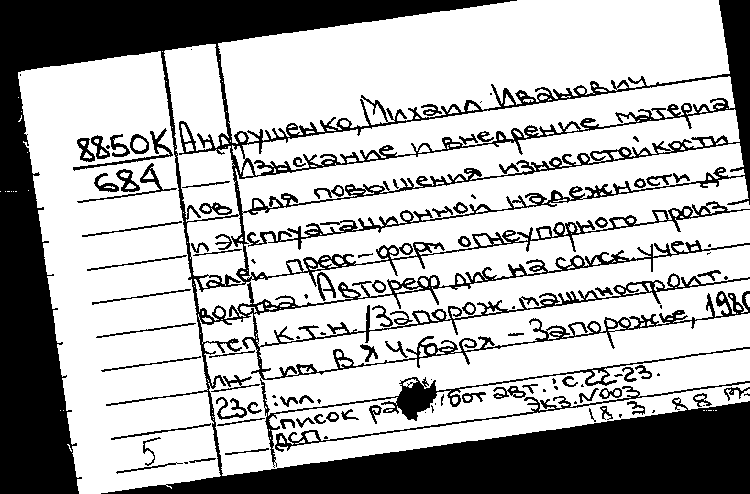 Андрущенко, Михаил Иванович.
88-50К
684
Изыскание и внедрение материа
лов для повышения износостойкости
и эксплуатационной надежности де-
талей пресс-форм огнеупорного произ-
водства: Автореф дис на соиск. учен.
степ. к.т.н. / Запорож. машиностроит.
ин-т им. В.Я. Чубаря. - Запорожье, 1980
23с :ил.
Список работ авт.: с. 22-23.
Экз. №003
ДСП.
18.3.88
5